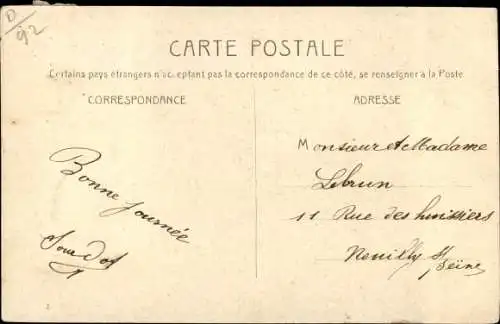 D/92
CARTE POSTALE
Certains pays étrangers n'acceptant pas la correspondance de ce côté, se renseigner à la Poste
CORRESPONDANCE
ADRESSE
Bonne journée
Monsieur et Madame
Lebrun
11 Rue des huissiers
Neuilly s/
Seine